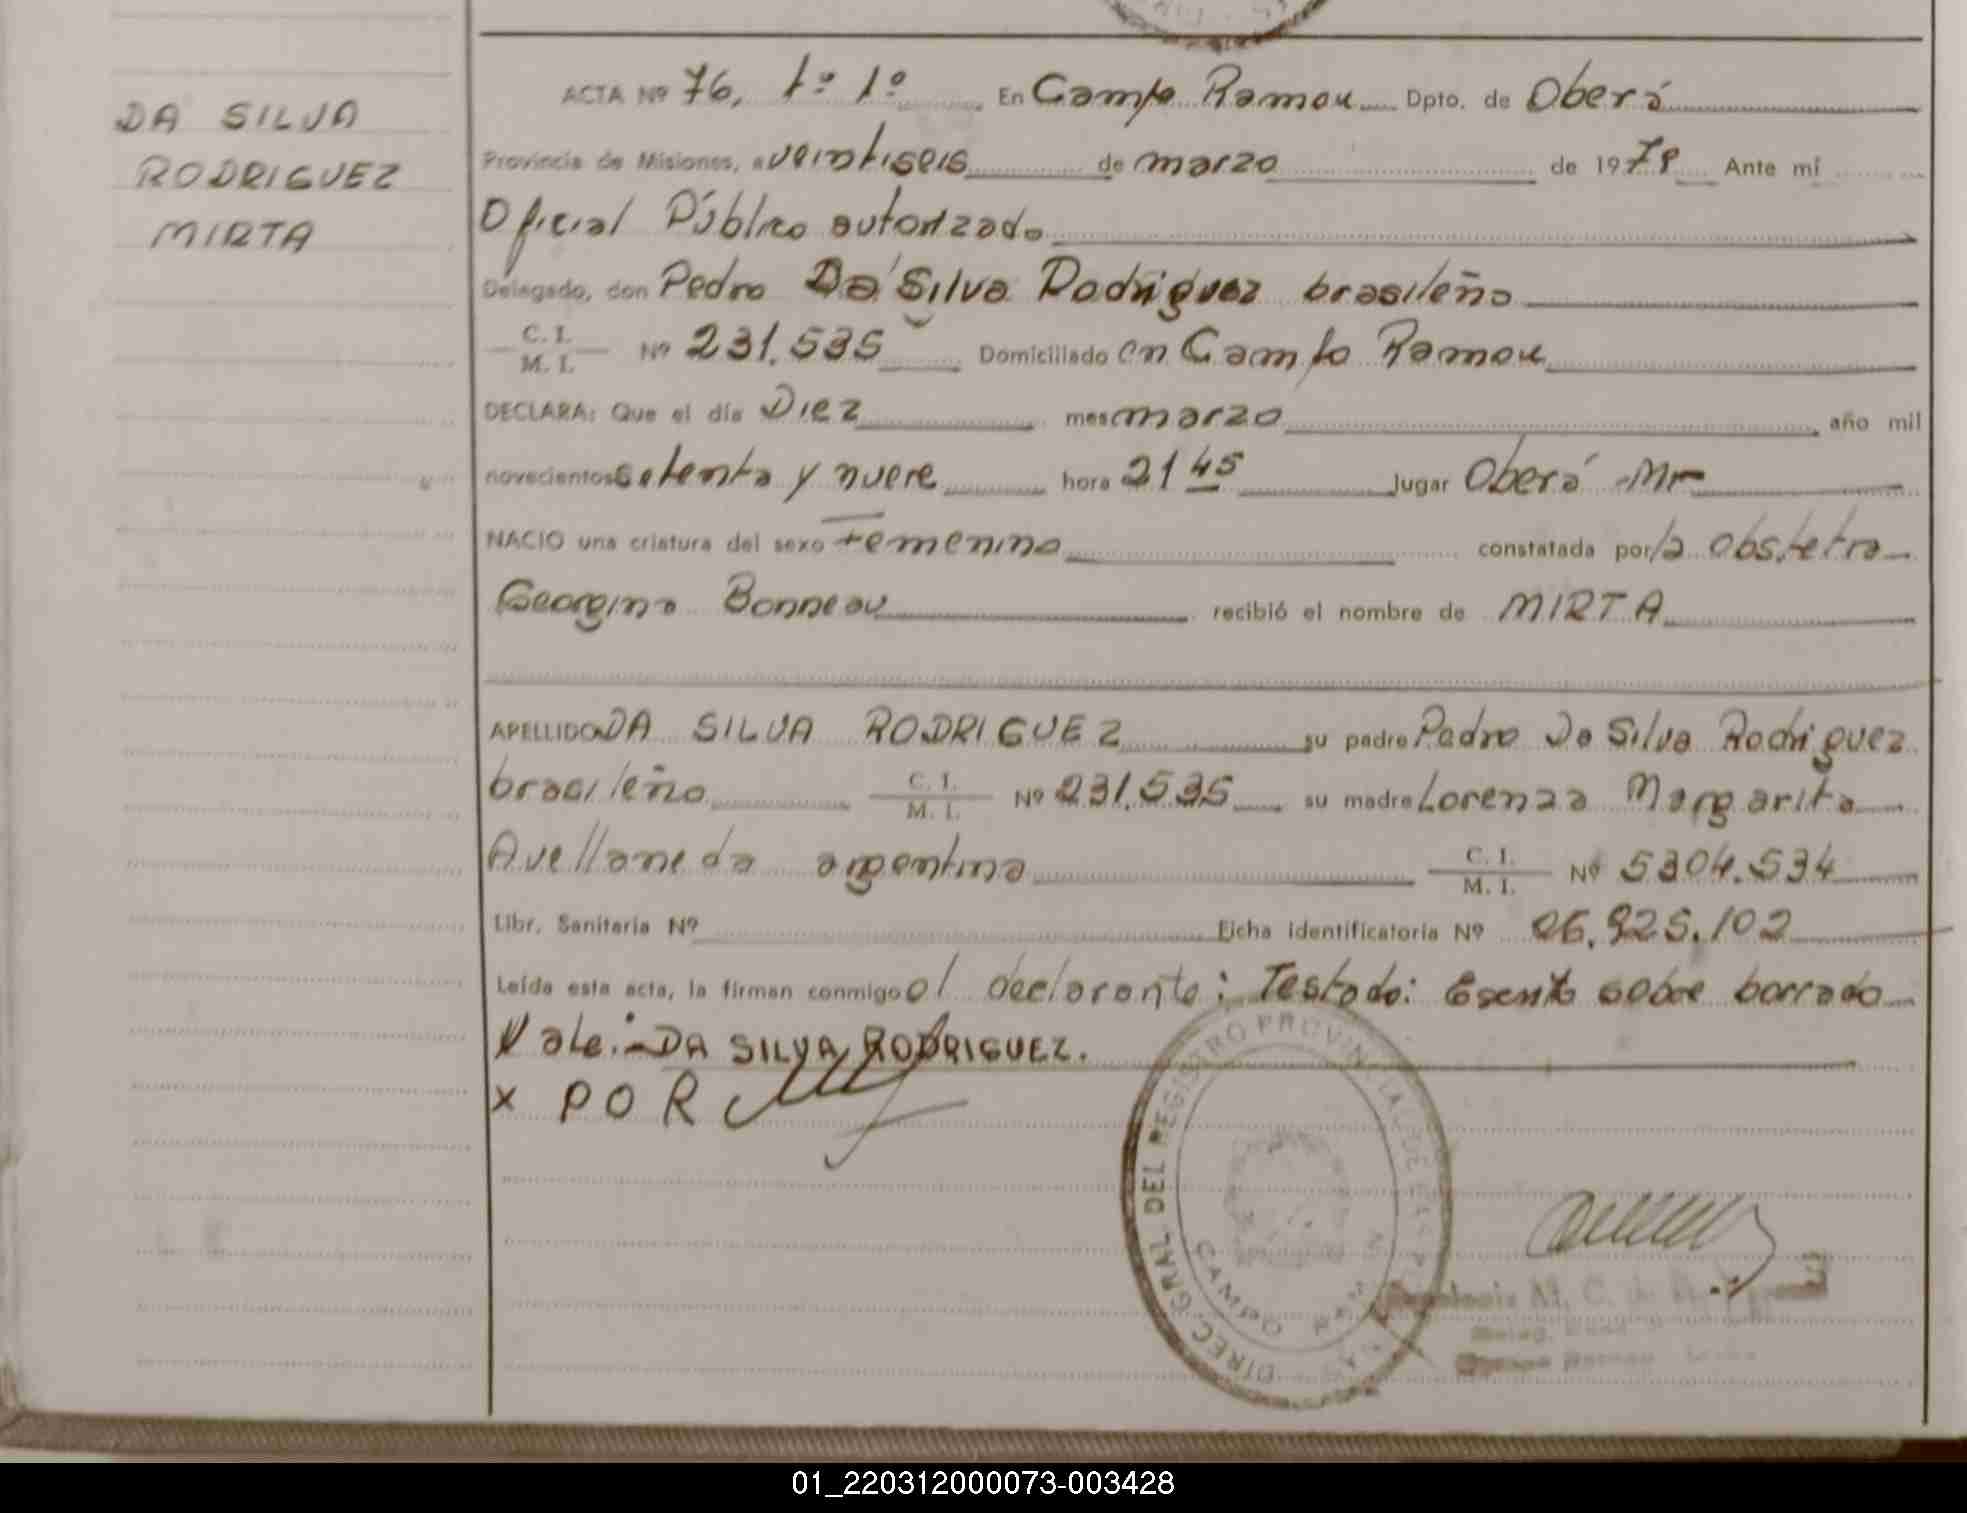 DA SILVA
RODRIGUEZ
MIRTA
ACTA Nº 76, 1º 1º En Campo Ramon Dpto. de Oberá
Provincia de Misiones, a veintiseis de marzo de 1979 Ante mí
Oficial Público autorizado
Delegado, don Pedro Da Silva Rodriguez brasileño
C. I.
M. I. Nº 231.535 Domiciliado en Campo Ramon
DECLARA: Que el día Diez mes marzo año mil
novecientos setenta y nueve hora 21 45 lugar Oberá Mnes
NACIO una criatura del sexo Femenino constatada por la obstetra
Georgina Bonneau recibió el nombre de MIRTA
APELLIDO DA SILVA RODRIGUEZ su padre Pedro Da Silva Rodriguez
brasileño C. I. M. I. Nº 231.535 su madre Lorenza Margarita
Avellaneda argentina C. I. M. I. Nº 5304.534
Libr. Sanitaria Nº Ficha identificatoria Nº 26.925.102
Leída esta acta, la firman conmigo el declarante; Testado: Escrito sobre borrado
Vale: DA SILVA RODRIGUEZ.
x POR
DIREC. GRAL DEL REGISTRO PROVINCIAL DE LAS PERSONAS
CAMPO RAMON
01_220312000073-003428